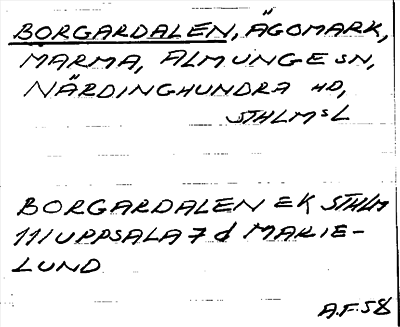 BORGARDALEN, ÄGOMARK,
MARMA, ALMUNGE SN,
NÄRDINGHUNDRA HD,
STHLMS L
BORGARDALEN EK STHLM
111 UPPSALA 7 d MARIE-
LUND
A.F. 58